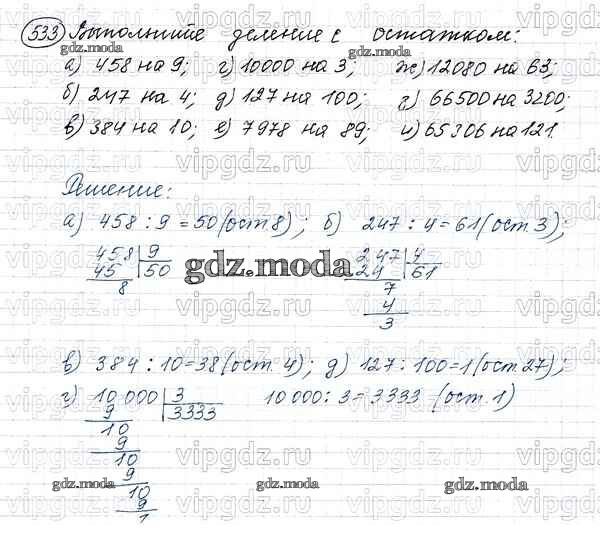 533 Выполните деление с остатком:
а) 458 на 9; г) 10000 на 3; ж) 12080 на 63;
б) 247 на 4; д) 127 на 100; г) 66500 на 3200;
в) 384 на 10; е) 7978 на 89; и) 65306 на 121.
Решение:
а) 458 : 9 = 50 (ост 8); б) 247 : 4 = 61 (ост. 3);
458 9 247 4
45 50 24 61
8 7
4
3
в) 384 : 10 = 38 (ост. 4); д) 127 : 100 = 1 (ост. 27);
г) 10 000 3 10 000 : 3 = 3333 (ост. 1)
9 3333
10
9
10
9
10
9
1
gdz.moda
vipgdz.ru